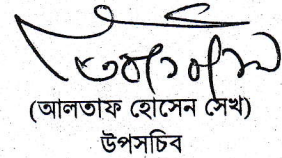 (আলতাফ হোসেন সেখ)
উপসচিব